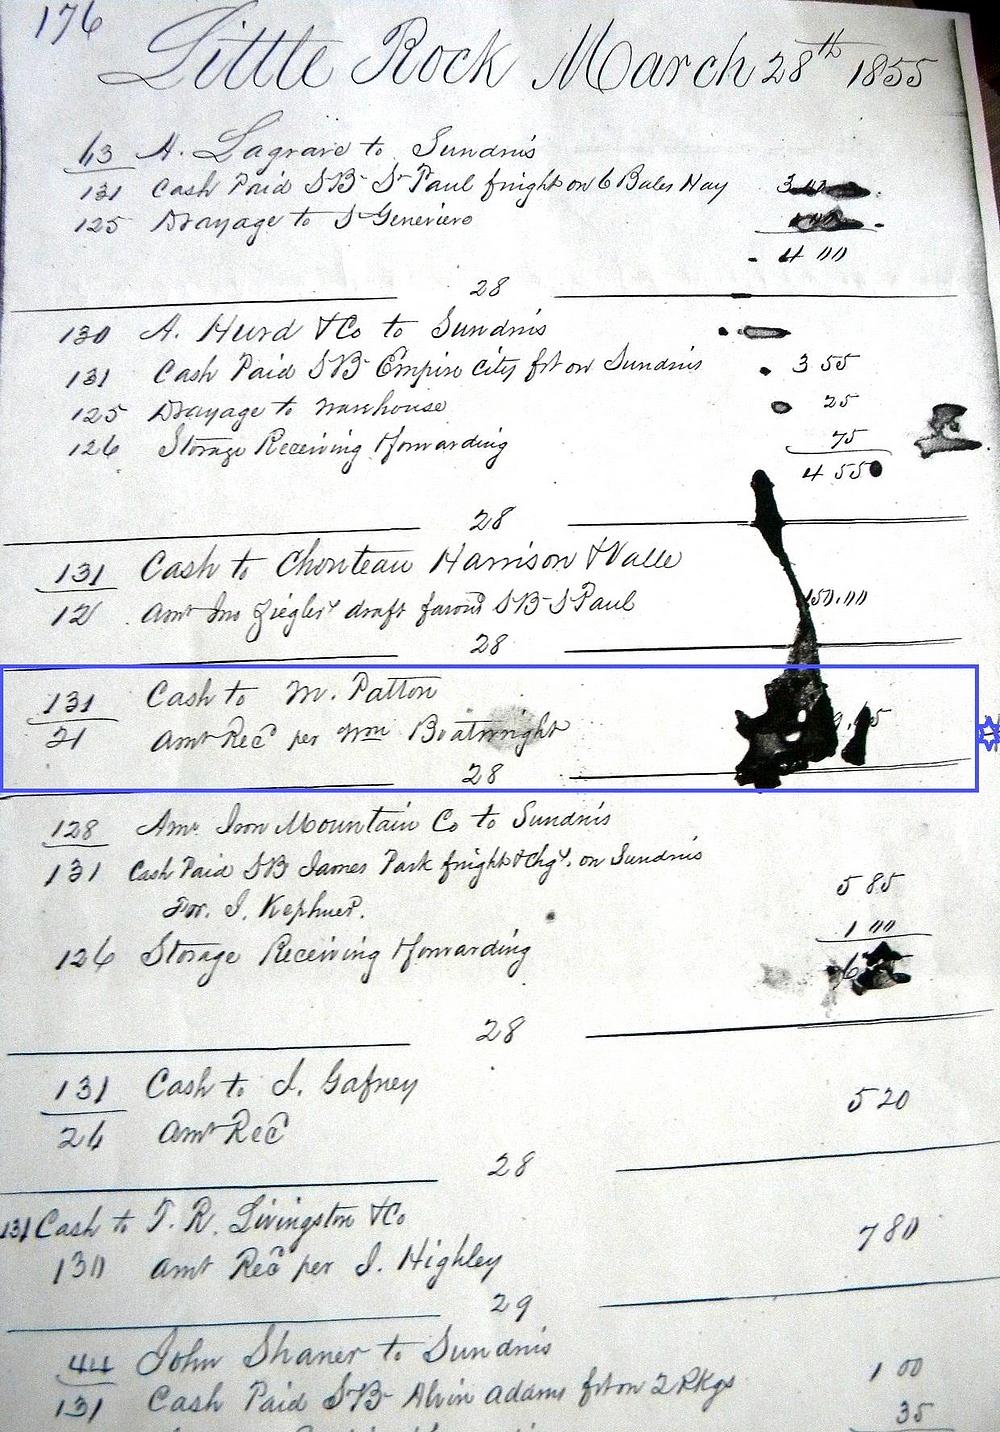 176
Little Rock March 28th 1855
63 A. Lagrave to Sundris
131 Cash Paid SB St Paul freight on 6 Bales Hay 3
125 Drayage to St Genevieve
4 00
28
130 A. Hurd & Co to Sundris
131 Cash Paid SB Empire City frt on Sundris 3 55
125 Drayage to warehouse 25
126 Storage Receiving & forwarding 75
4 55
28
131 Cash to Chouteau Harrison & Valle
12 Amt Jno Zieglers draft favord SB St Paul 150.00
28
131 Cash to M. Patton
21 Amt Recd per Wm Boatwright
28
128 Amr Iron Mountain Co to Sundris
131 Cash Paid SB James Park freight & Chgs. on Sundris 5 85
For. J. Kephner.
126 Storage Receiving & forwarding 1 00
6
28
131 Cash to J. Gafney
26 Amt Recd 5 20
28
131 Cash to T. R. Livingston & Co 7 80
130 Amt Recd per J. Highley
29
44 John Shaner to Sundris
131 Cash Paid SB Alvin Adams frt on 2 Pkgs 1 00
35